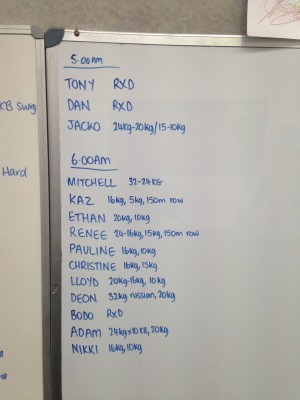 5:00am
TONY RXD
DAN RXD
JACKO 24kg-20kg/15-10kg
KB swing
6:00AM
Hard
MITCHELL 32-24KG
KAZ 16kg, 5kg, 150m row
ETHAN 20kg, 10kg
RENEE 24-16kg, 15kg, 150m row
PAULINE 16kg, 10kg
CHRISTINE 16kg, 15kg
LLOYD 20kg-16kg, 10kg
DEON 32kg russian, 20kg
BODO RxD
ADAM 24kgx10KB, 20kg
NIKKI 16kg, 10kg